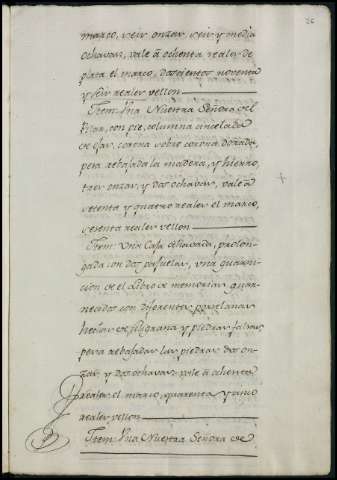 26
marco, seis onzas, seis y media
ochavas, vale à ochenta reales de
plata el marco, doscientos noventa
y seis reales vellon
Item: Una Nuestra Señora del
Pilar, con pie, columna cincelada
corona sobre corona dorada,
pesa rebajada la madera, y hierro,
tres onzas, y dos ochavas, vale à
setenta y quatro reales el marco,
sesenta reales vellon
Item: Una Caja ochavada, prolon-
gada con dos una guarni-
cion de el Libro de memorias guar-
necidos con diferentes
hechas de filigrana y piedras falsas
pesa rebajadas las piedras dos on-
zas y dos ochavas vale à ochenta
reales el marco, quarenta y cinco
reales vellon
Item: Una Nuestra Señora de